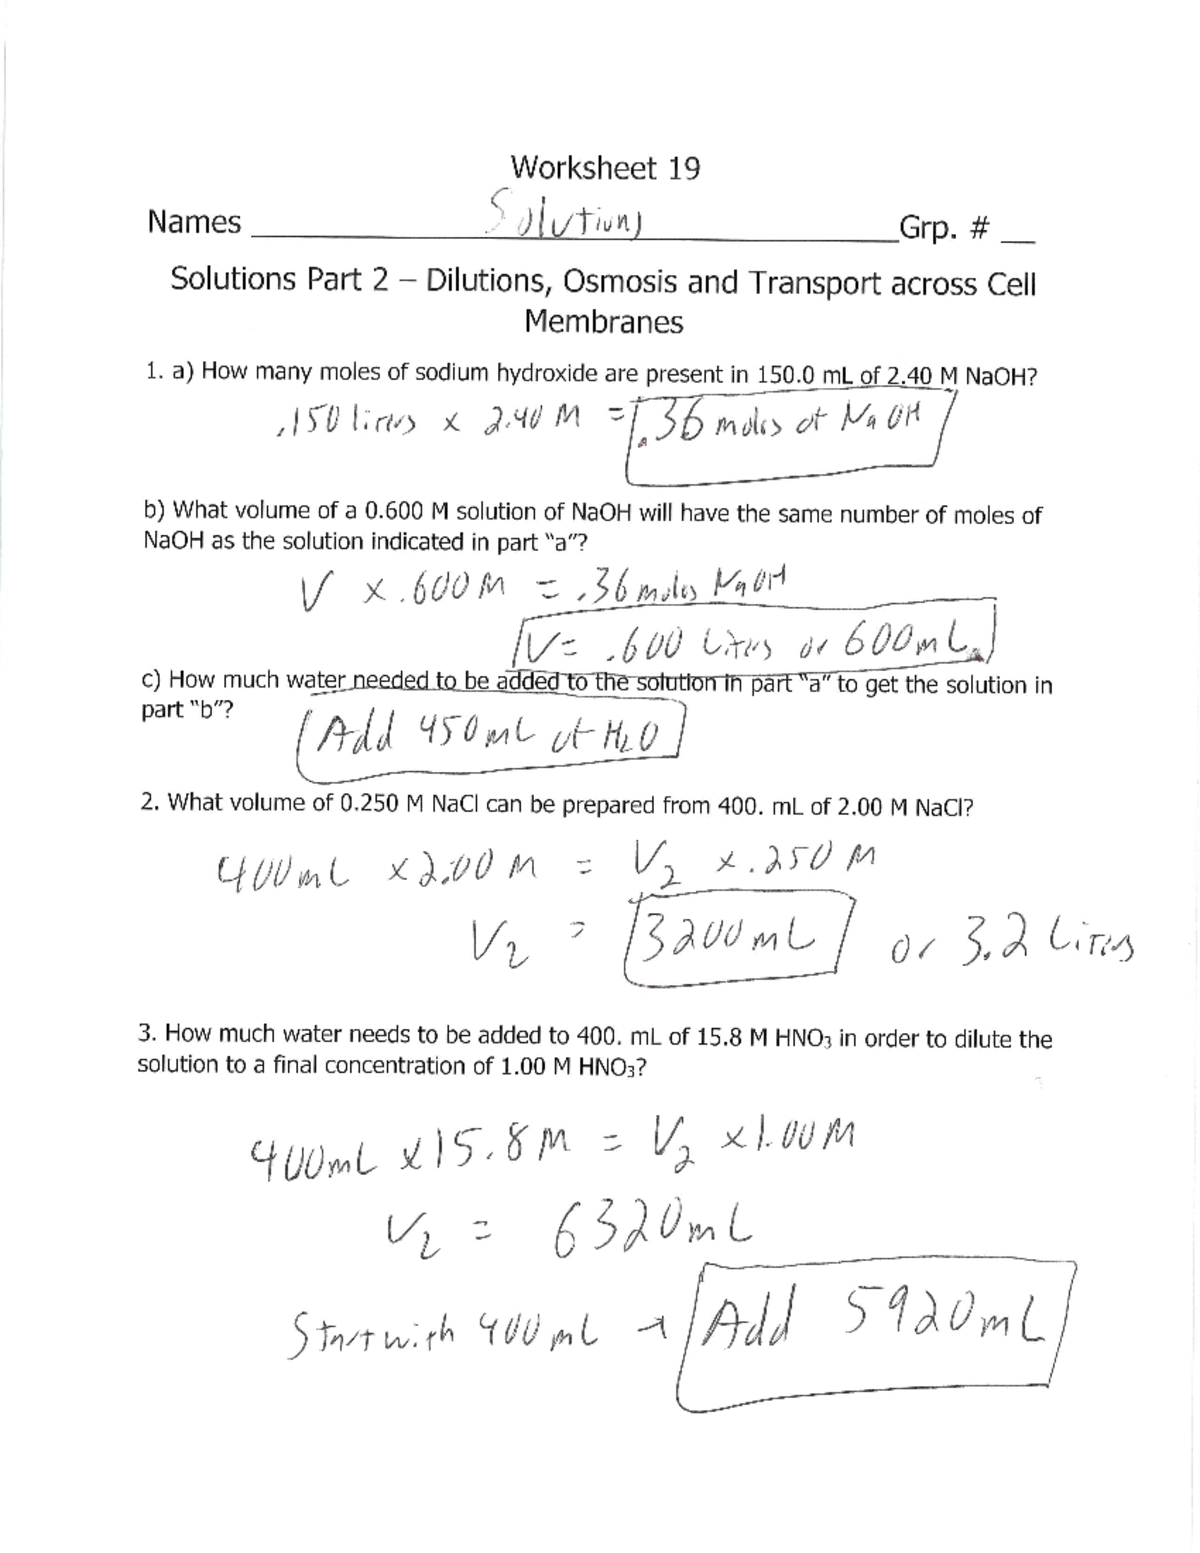 Worksheet 19
Names Solutions Grp. #
Solutions Part 2 – Dilutions, Osmosis and Transport across Cell
Membranes
1. a) How many moles of sodium hydroxide are present in 150.0 mL of 2.40 M NaOH?
.150 liters x 2.40 M = .36 moles of NaOH
b) What volume of a 0.600 M solution of NaOH will have the same number of moles of
NaOH as the solution indicated in part "a"?
V x .600 M = .36 moles NaOH
V = .600 Liters or 600 mL
c) How much water needed to be added to the solution in part "a" to get the solution in
part "b"?
Add 450 mL of H2O
2. What volume of 0.250 M NaCl can be prepared from 400. mL of 2.00 M NaCl?
400 mL x 2.00 M = V2 x .250 M
V2 = 3200 mL or 3.2 Liters
3. How much water needs to be added to 400. mL of 15.8 M HNO3 in order to dilute the
solution to a final concentration of 1.00 M HNO3?
400 mL x 15.8 M = V2 x 1.00 M
V2 = 6320 mL
Start with 400 mL → Add 5920 mL